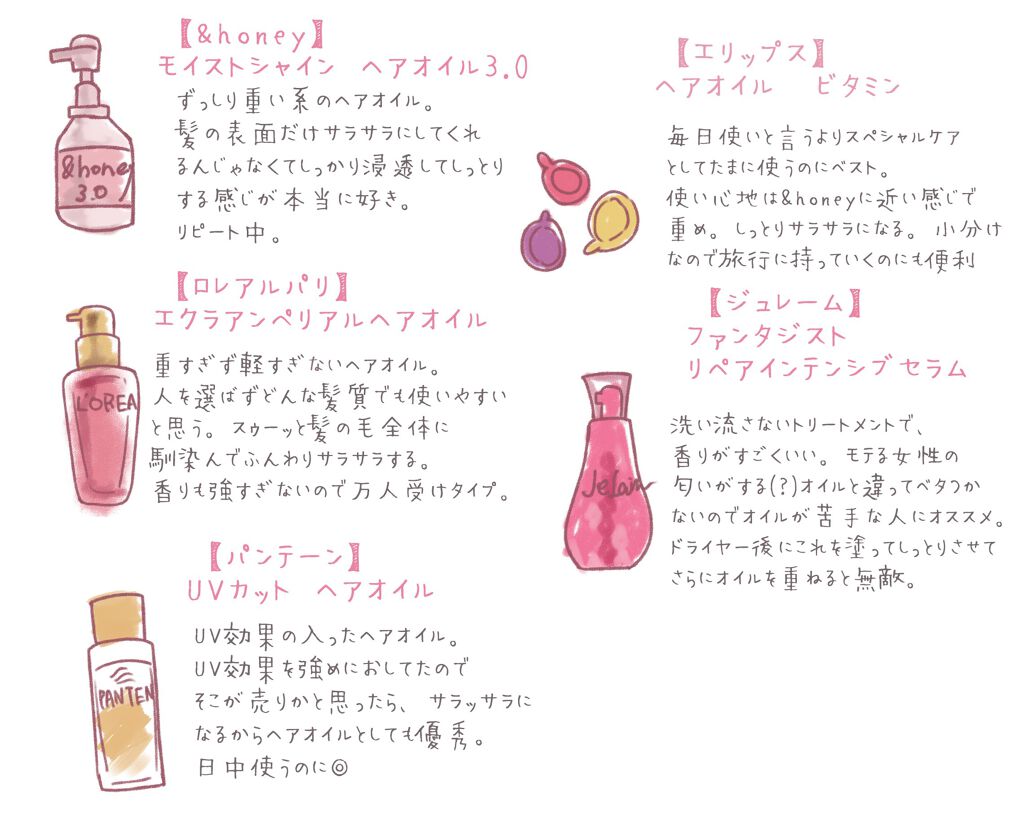 【&honey】
モイストシャイン ヘアオイル3.0
ずっしり重い系のヘアオイル。
髪の表面だけサラサラにしてくれ
るんじゃなくてしっかり浸透してしっとり
する感じが本当に好き。
リピート中。
&honey
3.0
【ロレアルパリ】
エクラアンペリアルヘアオイル
重すぎず軽すぎないヘアオイル。
人を選ばずどんな髪質でも使いやすい
と思う。スゥーッと髪の毛全体に
馴染んでふんわりサラサラする。
香りも強すぎないので万人受けタイプ。
L'OREA
【パンテーン】
UVカット ヘアオイル
UV効果の入ったヘアオイル。
UV効果を強めにおしてたので
そこが売りかと思ったら、サラッサラに
なるからヘアオイルとしても優秀。
日中使うのに◎
PANTEN
【エリップス】
ヘアオイル ビタミン
毎日使いと言うよりスペシャルケア
としてたまに使うのにベスト。
使い心地は&honeyに近い感じで
重め。しっとりサラサラになる。小分け
なので旅行に持っていくのにも便利
【ジュレーム】
ファンタジスト
リペアインテンシブセラム
洗い流さないトリートメントで、
香りがすごくいい。モテる女性の
匂いがする(?)オイルと違ってベタつか
ないのでオイルが苦手な人にオススメ。
ドライヤー後にこれを塗ってしっとりさせて
さらにオイルを重ねると無敵。